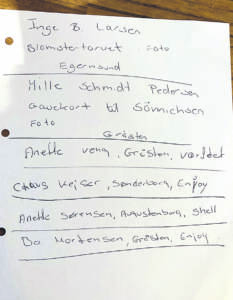 Inge B. Larsen
Blomstertorvet Foto
Egernsund
Hille Schmidt Pedersen
Gavekort til Sönnichsen
Foto
Gråsten
Anette Veng, Gråsten,
Claus Keiser, Sønderborg, Enjoy
Anette Sørensen, Augustenborg, Shell
Bo Mortensen, Gråsten, Enjoy